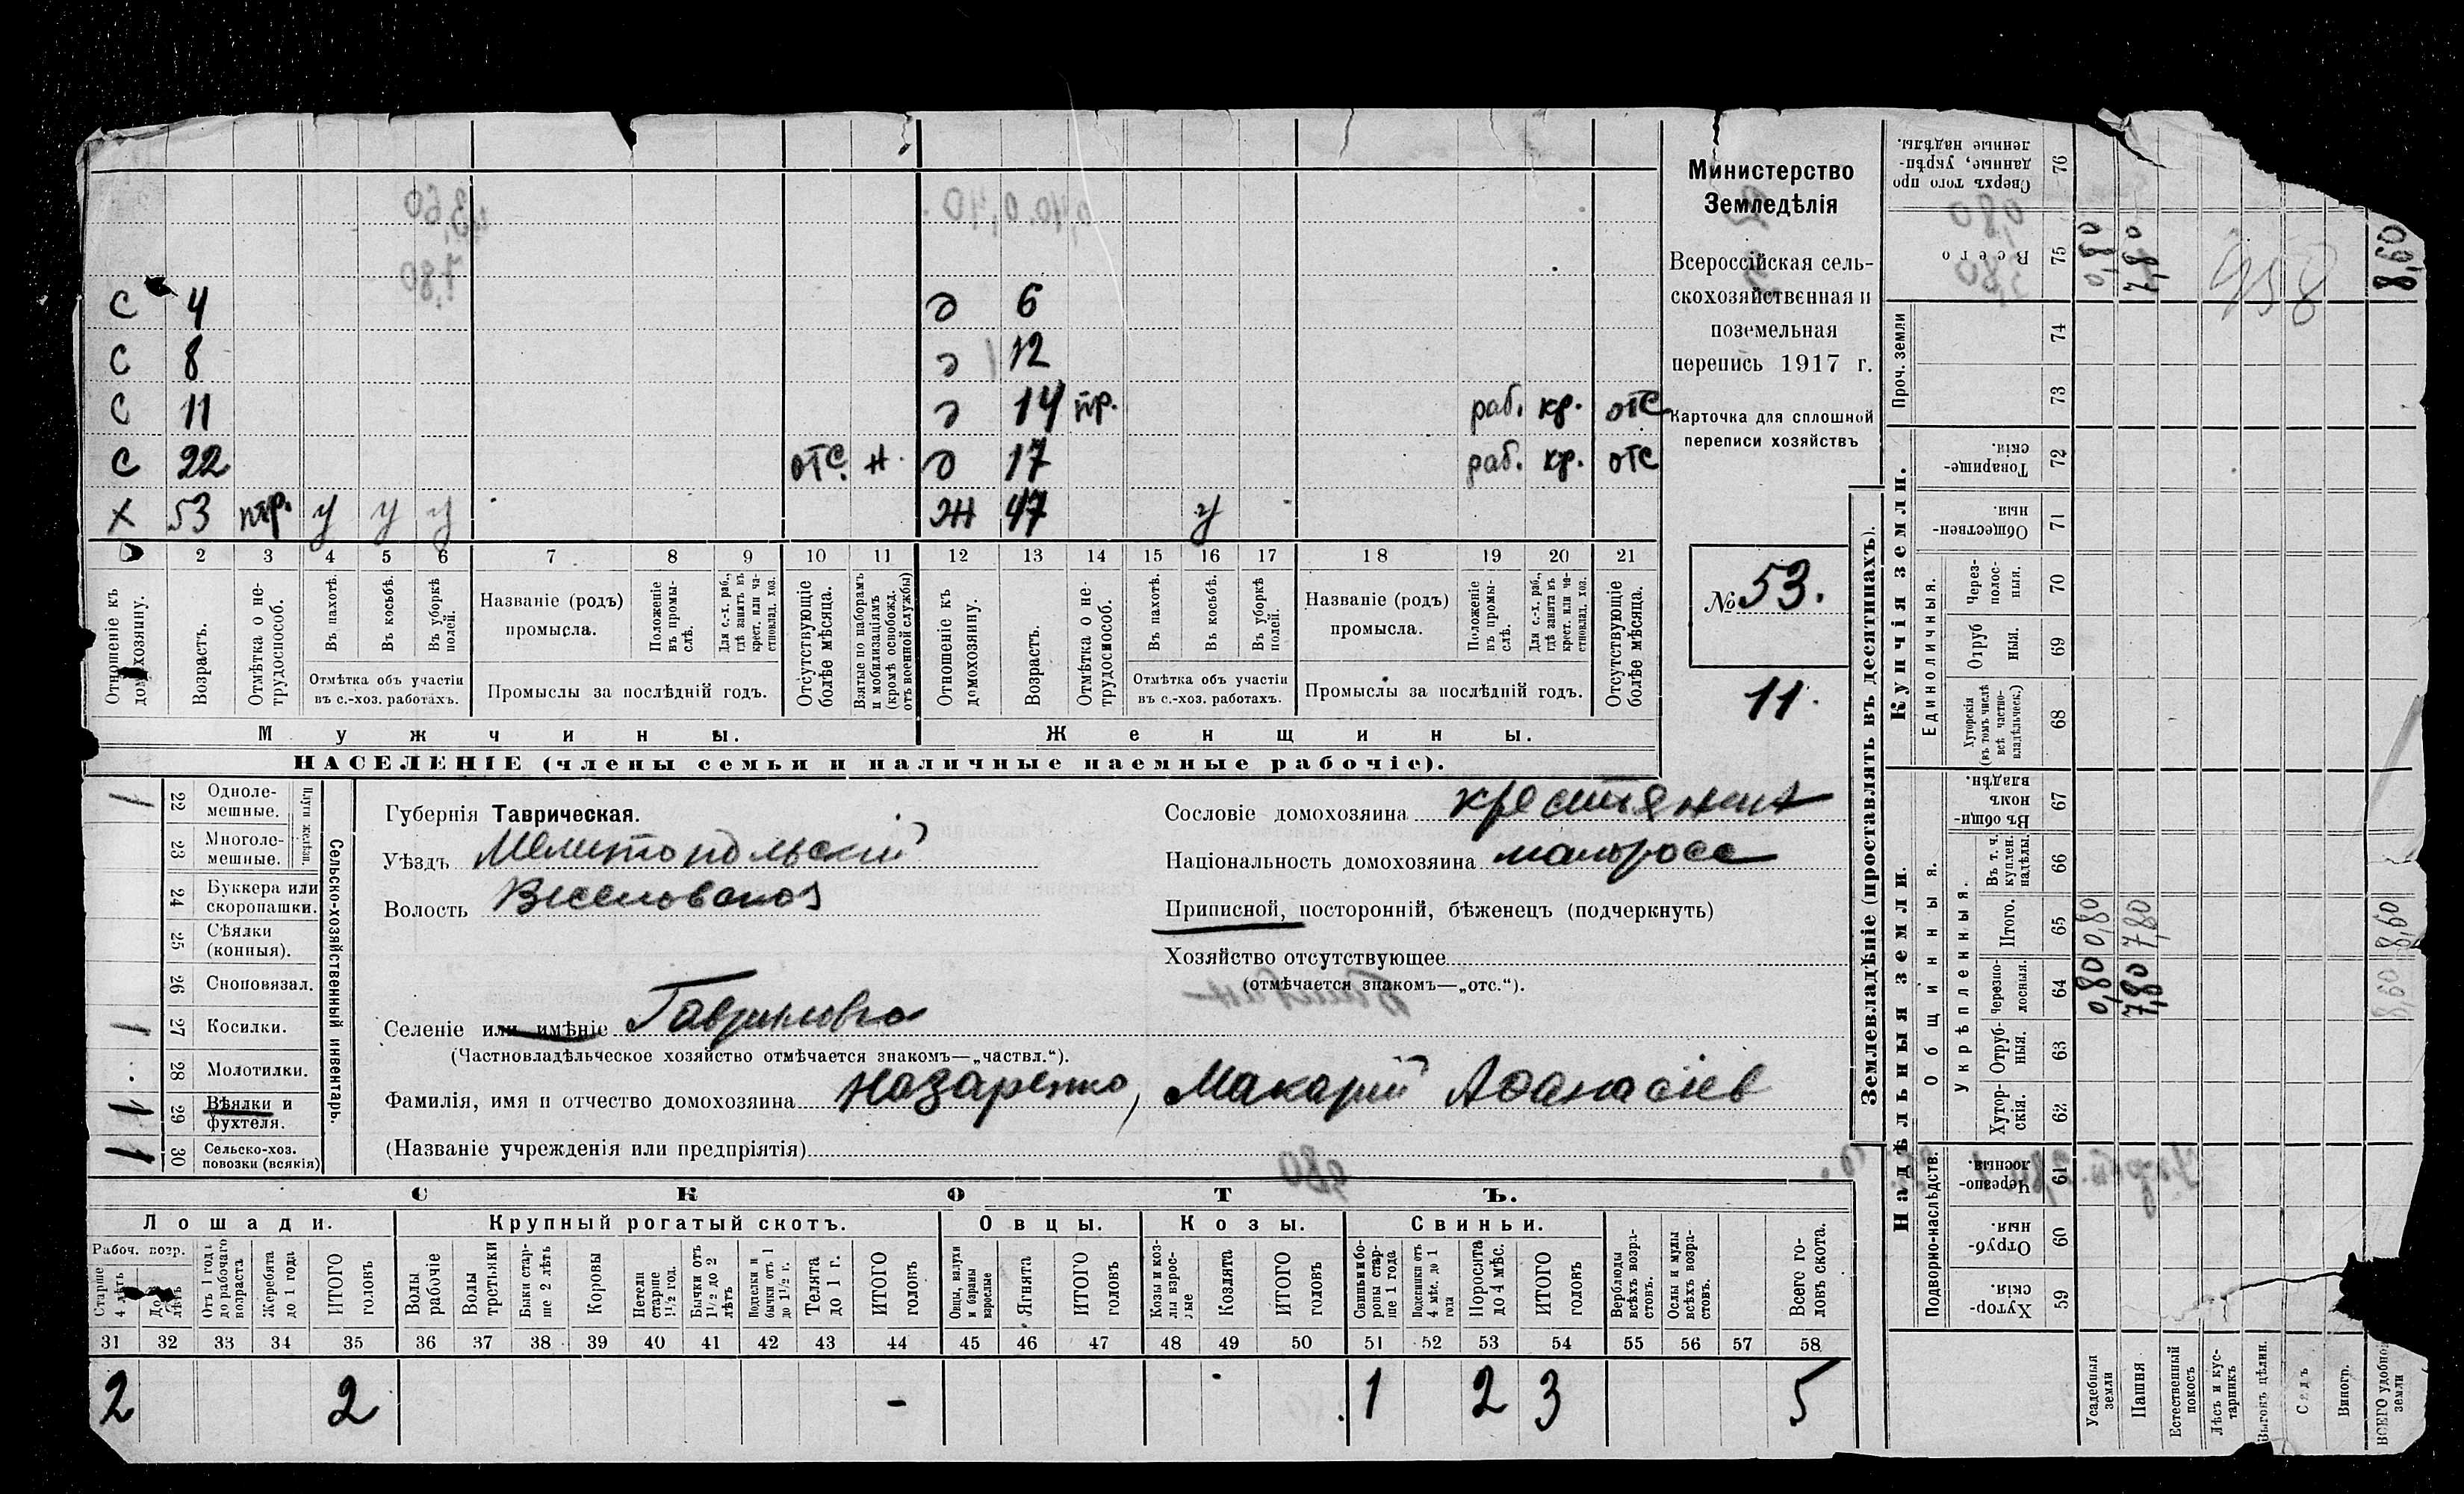 С 4 д 6
С 8 д 12
С 11 д 14 нтр. раб. кр. отс
С 22 отс. н. д 17 раб. кр. отс
Х 53 нтр. у у у ЖН 47 у
1 2 3 4 5 6 7 8 9 10 11 12 13 14 15 16 17 18 19 20 21
Отношеніе къ домохозяину.
Возрастъ.
Отмѣтка о нетрудоспособ.
Въ пахотѣ.
Въ косьбѣ.
Въ уборкѣ полей.
Отмѣтка объ участіи
въ с.-хоз. работахъ.
Названіе (родъ)
промысла.
Положеніе въ промыслѣ.
Для с.-х. раб., гдѣ занятъ въ крест. или частновлад. хоз.
Промыслы за послѣдній годъ.
Отсутствующіе болѣе мѣсяца.
Взятые по наборамъ и мобилизаціямъ (кромѣ освобожд. отъ военной службы)
Отношеніе къ домохозяину.
Возрастъ.
Отмѣтка о нетрудоспособ.
Въ пахотѣ.
Въ косьбѣ.
Въ уборкѣ полей.
Отмѣтка объ участіи
въ с.-хоз. работахъ.
Названіе (родъ)
промысла.
Положеніе въ промыслѣ.
Для с.-х. раб., гдѣ занята въ крест. или частновлад. хоз.
Промыслы за послѣдній годъ.
Отсутствующіе болѣе мѣсяца.
Мужчины. Женщины.
НАСЕЛЕНІЕ (члены семьи и наличные наемные рабочіе).
Министерство
Земледѣлія
Всероссійская сель-
скохозяйственная и
поземельная
перепись 1917 г.
Карточка для сплошной
переписи хозяйствъ
№ 53.
11.
Сельско-хозяйственный инвентарь.
Плуги желѣзн.
1 22 Однолемешные.
23 Многолемешные.
24 Буккера или скоропашки.
25 Сѣялки (конныя).
26 Сноповязал.
1 27 Косилки.
28 Молотилки.
1 29 Вѣялки и фухтеля.
1 30 Сельско-хоз. повозки (всякія)
Губернія Таврическая.
Уѣздъ Мелитопольскій
Волость Веселовская
Селеніе или имѣніе Гавриловка
(Частновладѣльческое хозяйство отмѣчается знакомъ—„частвл.“).
Сословіе домохозяина крестьянинъ
Національность домохозяина малоросс
Приписной, посторонній, бѣженецъ (подчеркнуть)
Хозяйство отсутствующее
(отмѣчается знакомъ—„отс.“).
Фамилія, имя и отчество домохозяина Назаренко, Макарій Афанасіев
(Названіе учрежденія или предпріятія)
СКОТЪ.
Лошади. Крупный рогатый скотъ. Овцы. Козы. Свиньи.
Рабоч. возр.
Старше 4 лѣтъ
До 4 лѣтъ
Отъ 1 года до рабочаго возраста
Жеребята до 1 года
ИТОГО головъ
Волы рабочіе
Волы третьяки
Быки старше 2 лѣтъ
Коровы
Нетели старше 1½ год.
Бычки отъ 1½ до 2 лѣтъ
Подтелки и бычки отъ 1 до 1½ г.
Телята до 1 г.
ИТОГО головъ
Овцы, валухи и бараны взрослые
Ягнята
ИТОГО головъ
Козы и козлы взрослые
Козлята
ИТОГО головъ
Свиньи и боровы старше 1 года
Подсвинки отъ 4 мѣс. до 1 года
Поросята до 4 мѣс.
ИТОГО головъ
Верблюды всѣхъ возрастовъ.
Ослы и мулы всѣхъ возрастовъ.
Всего головъ скота.
31 32 33 34 35 36 37 38 39 40 41 42 43 44 45 46 47 48 49 50 51 52 53 54 55 56 57 58
2 2 - 1 2 3 5
Землевладѣніе (проставлять въ десятинахъ).
Купчія земли.
Надѣльныя земли.
Проч. земли
Единоличныя.
Общинныя.
Укрѣпленныя.
Подворно-наслѣдств.
Сверхъ того проданные, укрѣпленные надѣлы. 76
Всего 75
74
73
Товарищескія. 72
Общественныя. 71
Черезполосныя. 70
Отрубныя. 69
Хуторскія (въ томъ числѣ всѣ частновладѣльческ.) 68
Въ общинномъ владѣн. 67
Въ т. ч. куплен. надѣлы. 66
Итого. 65
Черезполосныя. 64
Отрубныя. 63
Хуторскія. 62
Черезполосныя. 61
Отрубныя. 60
Хуторскія. 59
0,80 7,80 8,60
958
0,80 7,80 8,60
0,80 7,80 8,60
Усадебныя земли
Пашня
Естественный покосъ
Лѣсъ и кустарникъ
Выгонъ цѣлин.
Садъ
Виногр.
ВСЕГО удобной земли